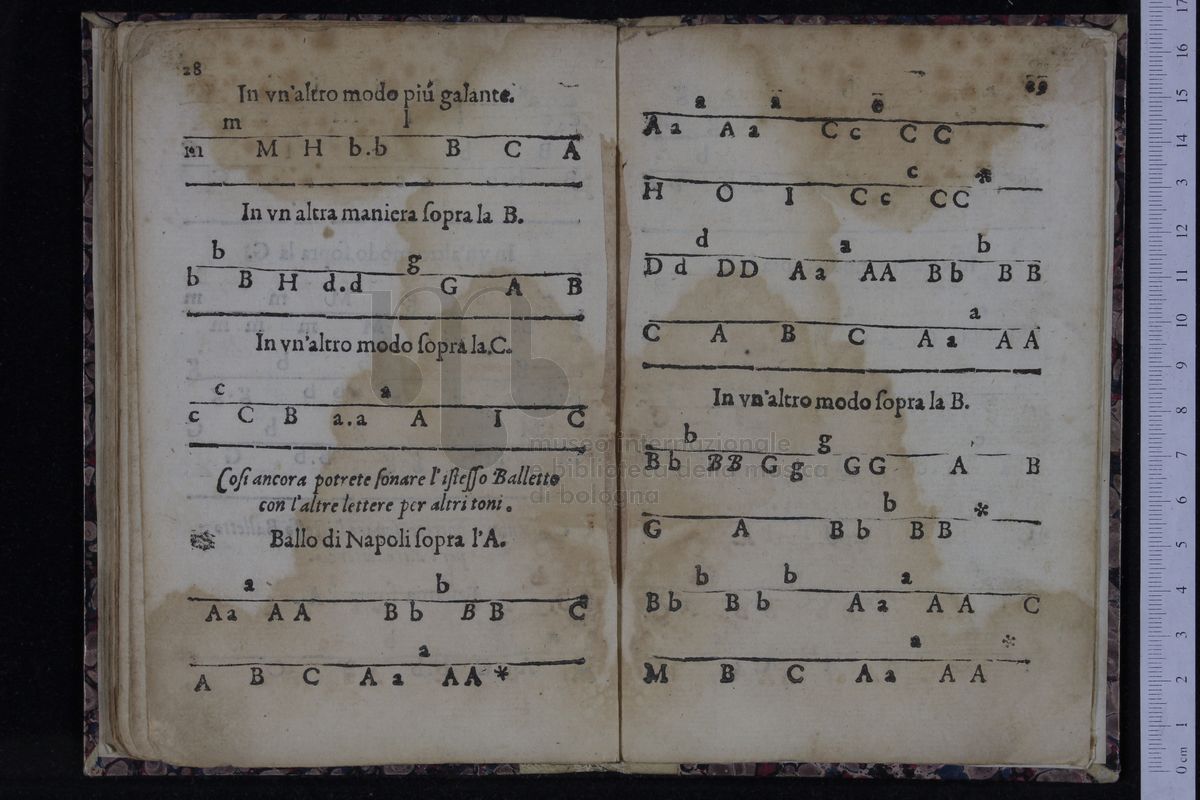 28
In vn'altro modo piú galante.
m l
m M H b.b B C A
In vn altra maniera ſopra la B.
b g
b B H d.d G A B
In vn'altro modo ſopra la.C.
c a
c C B a.a A I C
Coſi ancora potrete ſonare l'iſteſſo Balletto
con l'altre lettere per altri toni.
Ballo di Napoli ſopra l'A.
a b
Aa AA Bb BB C
a
A B C Aa AA *
a a
Aa Aa Cc CC
c *
H O I Cc CC
d a b
Dd DD Aa AA Bb BB
a
C A B C Aa AA
In vn'altro modo ſopra la B.
b g
Bb BB Gg GG A B
b *
G A Bb BB
b b a
Bb Bb Aa AA C
a *
M B C Aa AA
museo internazionale
e biblioteca della musica
di bologna
0 cm 1 2 3 4 5 6 7 8 9 10 11 12 13 14 15 16 17